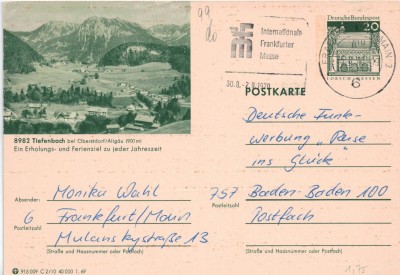 99
do
Internationale
Frankfurter
Messe
30.8.-2.9.1970
Deutsche Bundespost
20
LORSCH HESSEN
6
8982 Tiefenbach bei Oberstdorf/Allgäu (900m)
Ein Erholungs- und Ferienziel zu jeder Jahreszeit
POSTKARTE
Deutsche Funk-
werbung „Pause
ins Glück"
Absender:
Monika Wahl
6 Frankfurt/Main
Postleitzahl
Mulanskystraße 13
(Straße und Hausnummer oder Postfach)
757 Baden-Baden 100
Postleitzahl
Postfach
(Straße und Hausnummer oder Postfach)
916 009 C 2/10 40 000 1.69